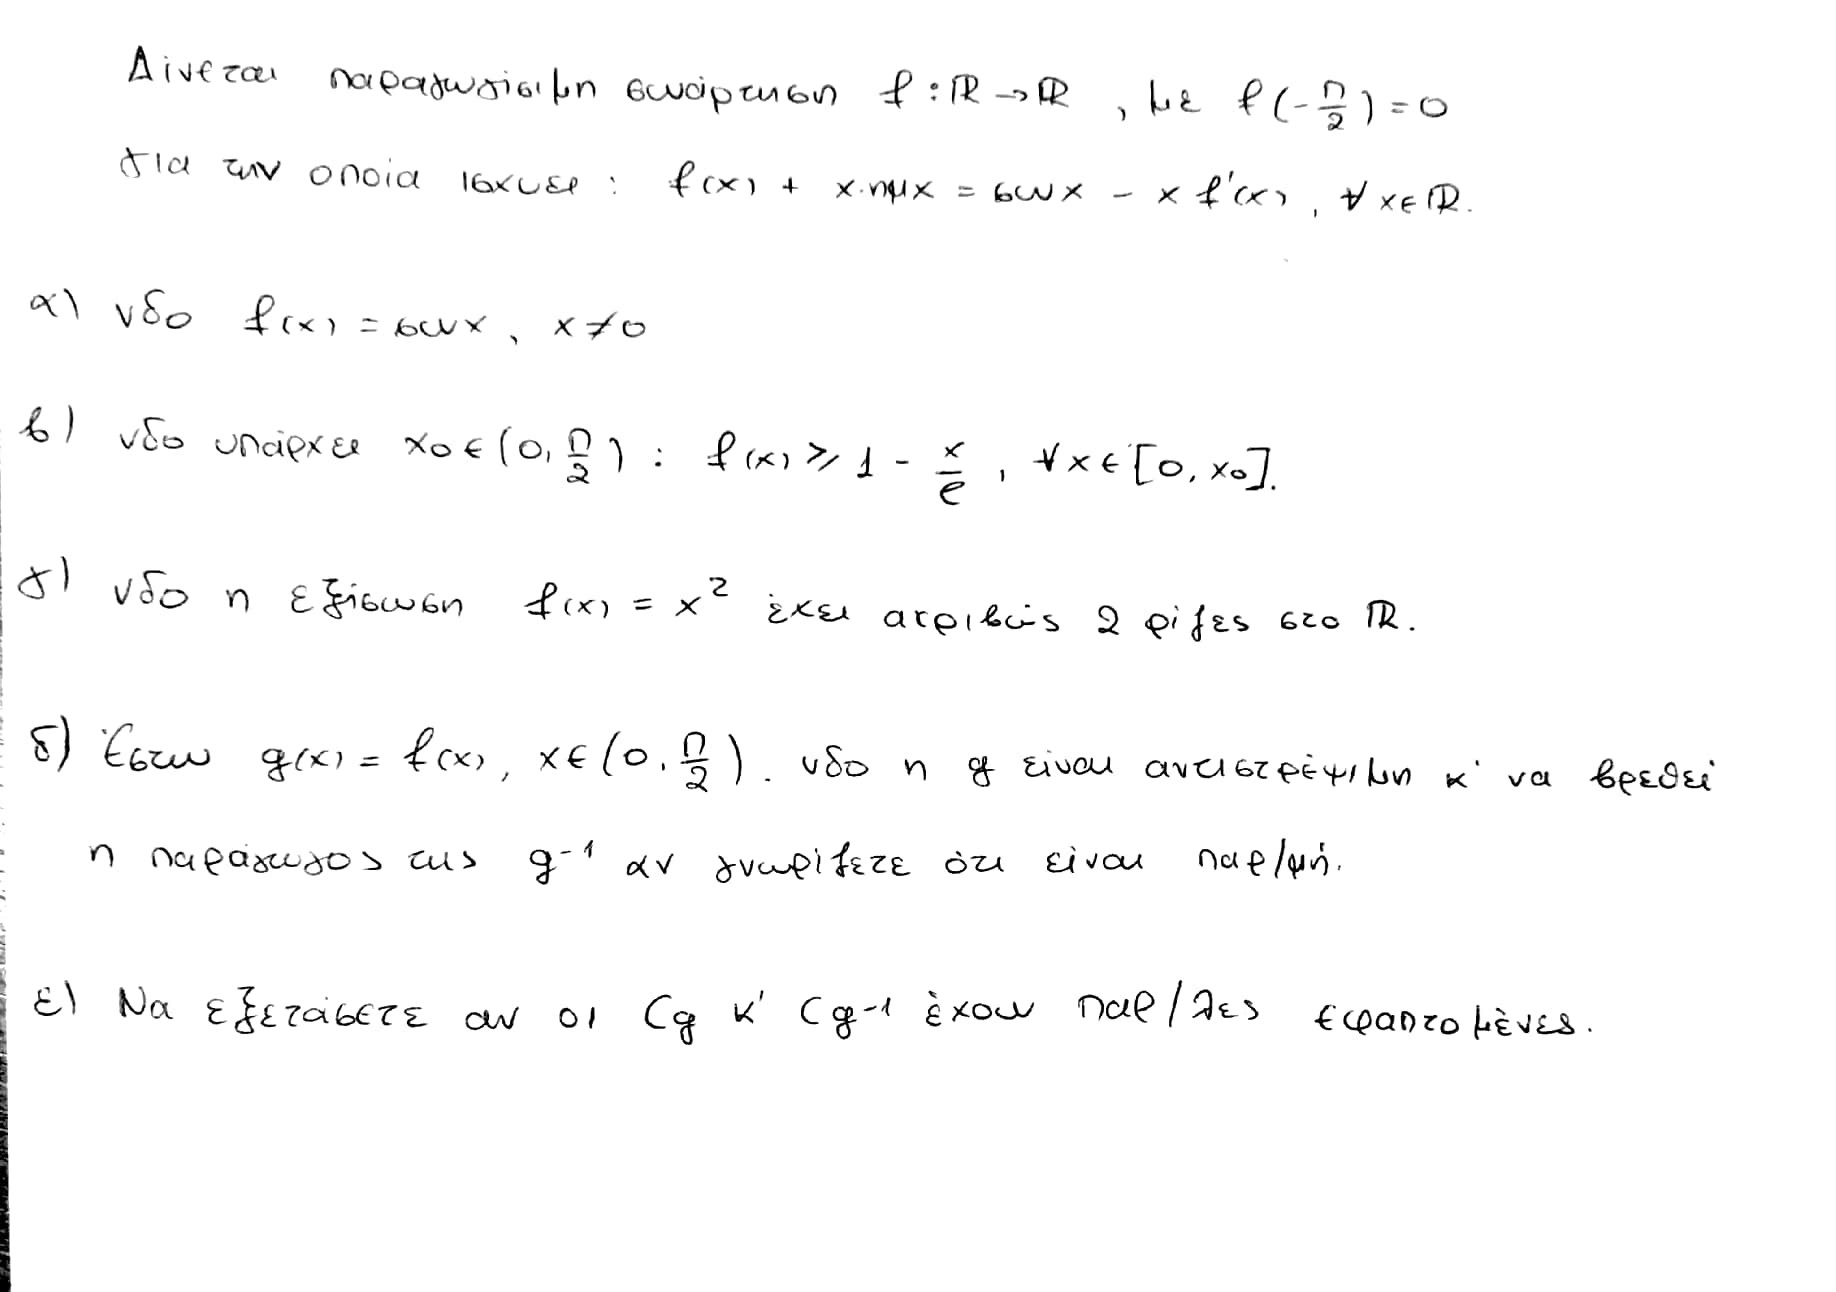 Δίνεται παραγωγίσιμη συνάρτηση f: ℝ → ℝ, με f(-π/2) = 0
για την οποία ισχύει: f(x) + x·ημx = συνx - x f'(x), ∀ x ∈ ℝ.
α) νδο f(x) = συνx, x ≠ 0
β) νδο υπάρχει x₀ ∈ (0, π/2) : f(x) ≥ 1 - x/e, ∀ x ∈ [0, x₀].
γ) νδο η εξίσωση f(x) = x² έχει ακριβώς 2 ρίζες στο ℝ.
δ) Έστω g(x) = f(x), x ∈ (0, π/2). νδο η g είναι αντιστρέψιμη κ' να βρεθεί
η παράγωγος της g⁻¹ αν γνωρίζετε ότι είναι παρ/μη.
ε) Να εξετάσετε αν οι Cg κ' Cg⁻¹ έχουν παρ/λες εφαπτομένες.